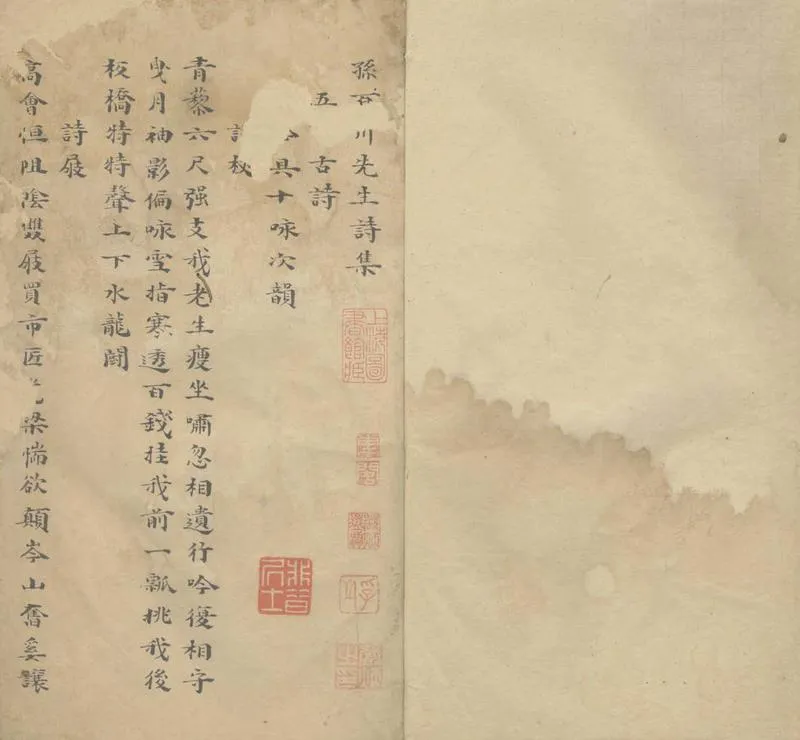 孫石川先生詩集
五古詩
具十咏次韻
詩杖
青藜六尺强支我老生瘦坐嘯忽相遺行吟復相守
曳月袖影偏咏雪指寒透百錢挂我前一瓢挑我後
板橋特特聲上下水龍鬪
詩屐
高會恒阻陰雙屐買市匠梁惴欲顛岑山奮奚讓
上海圖書館藏